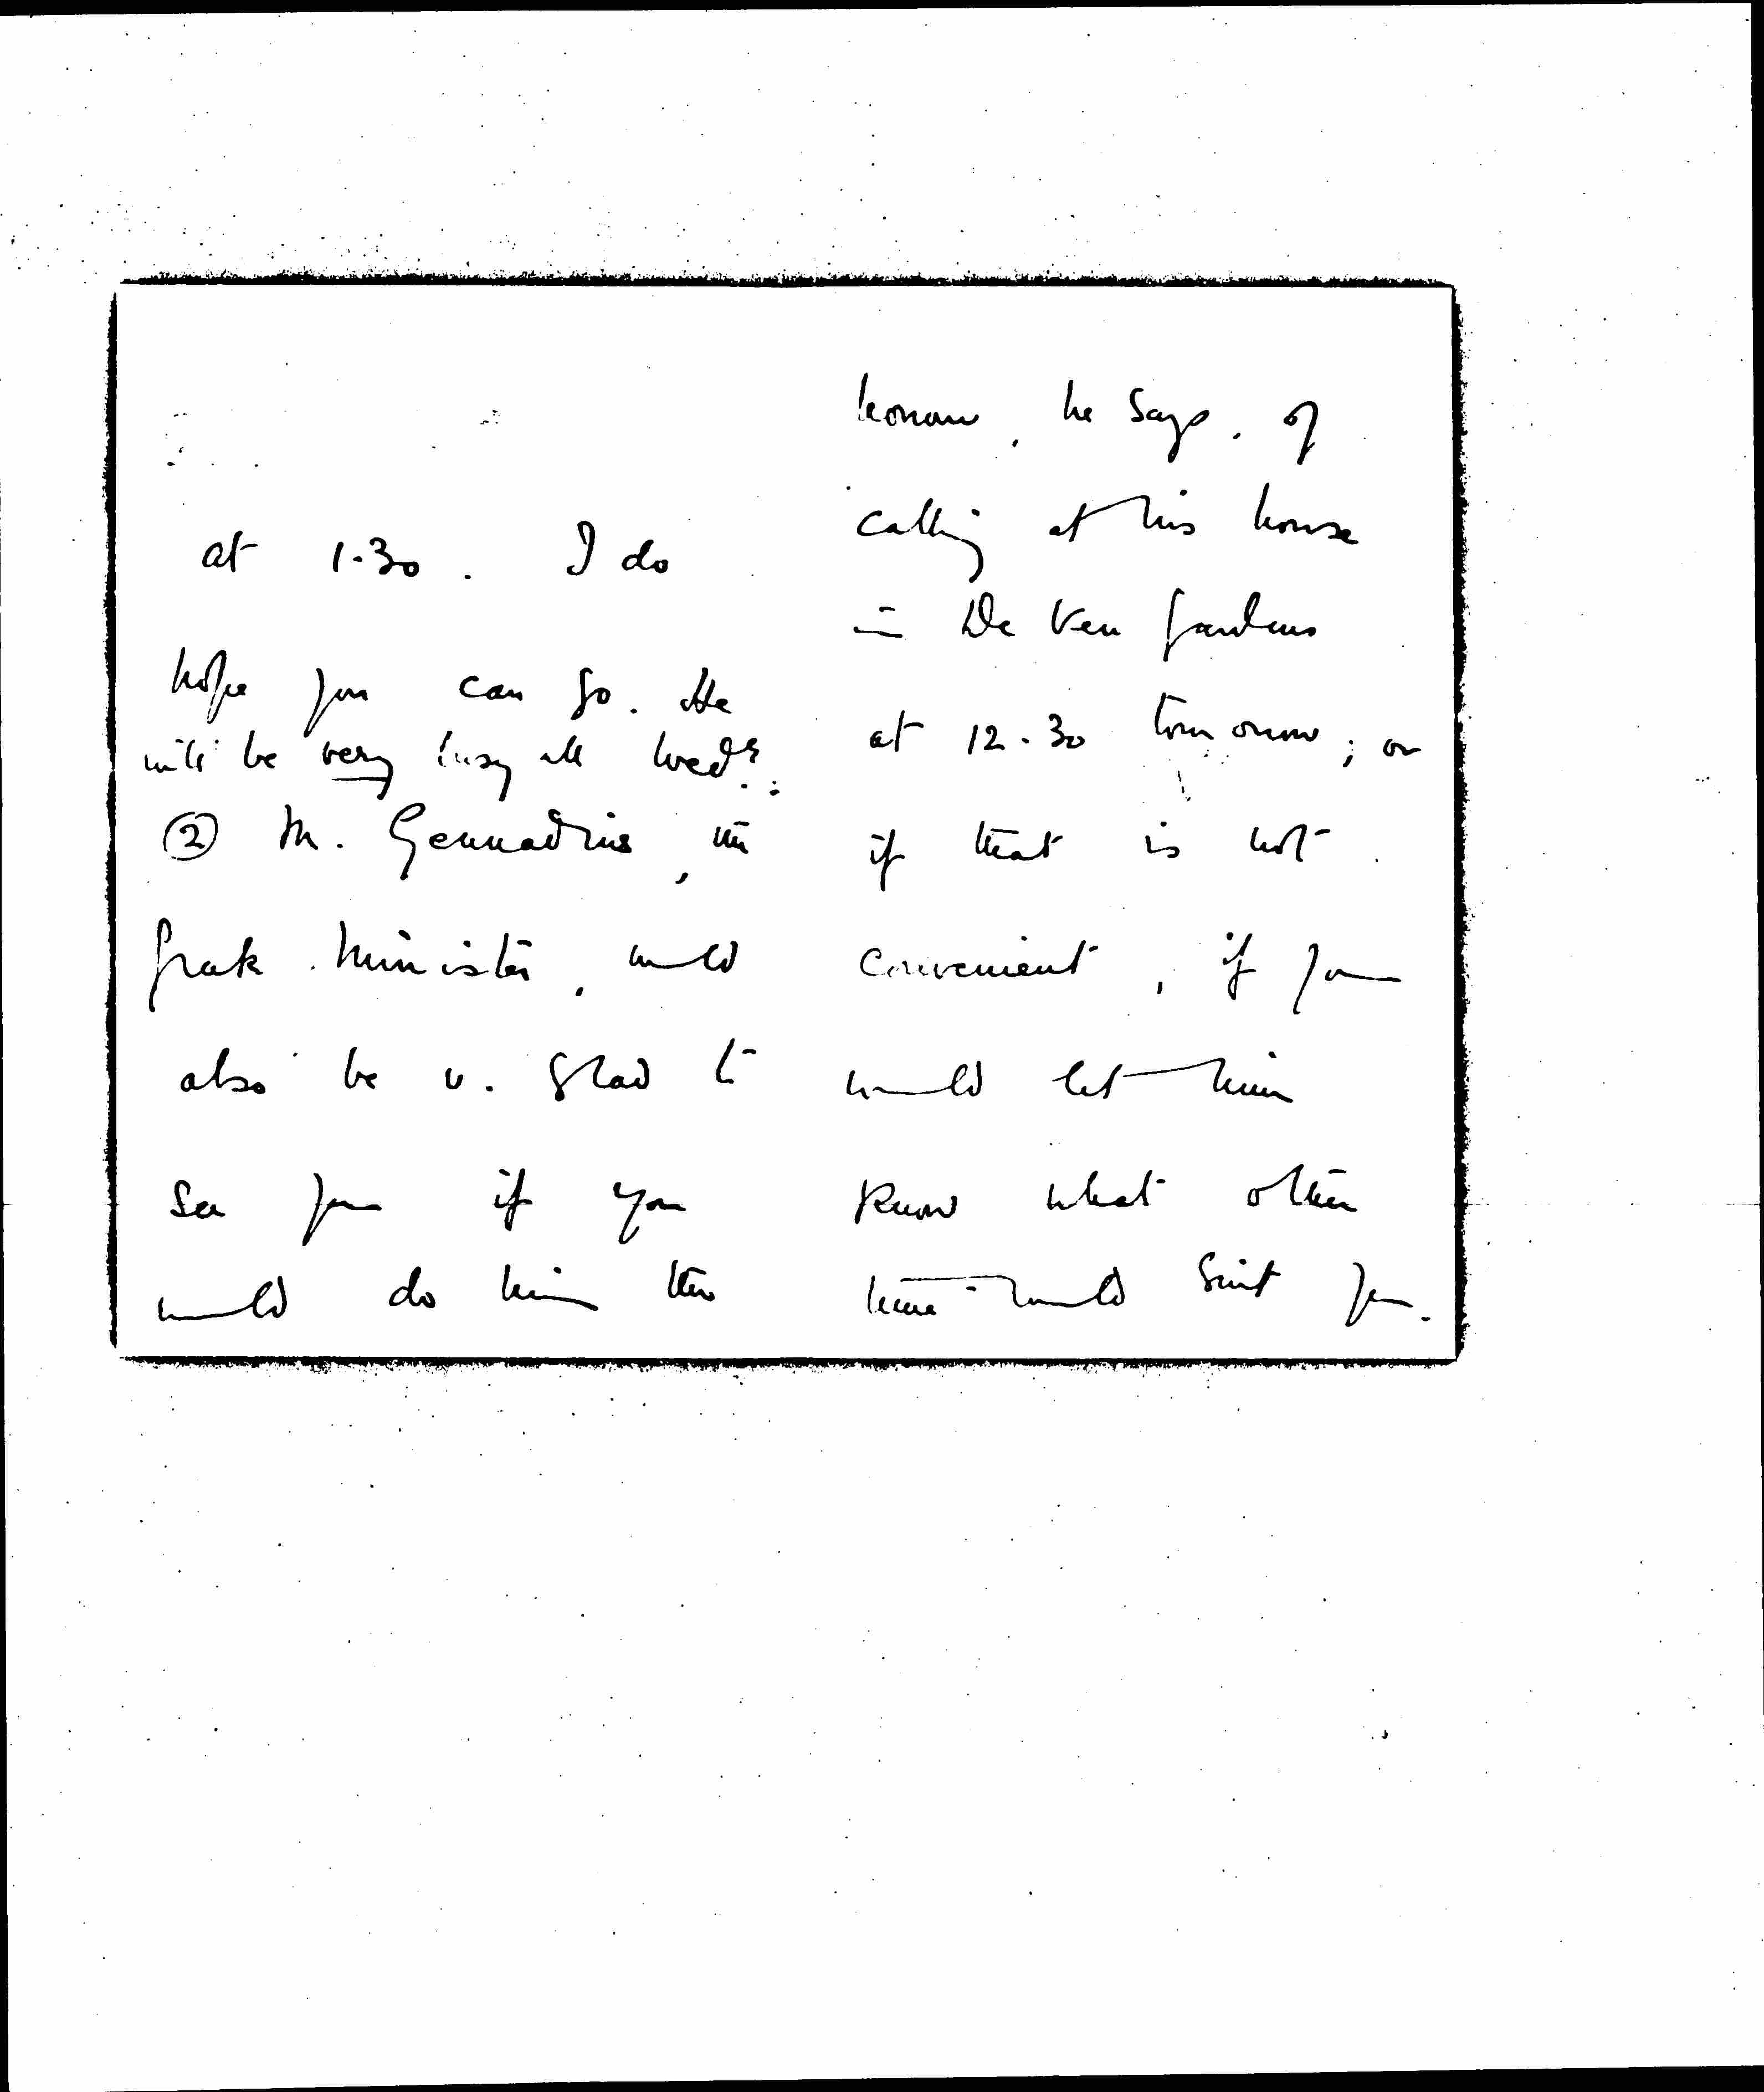 at 1.30. I do
hope you can go. He
will be very busy all Wed.:
② M. Gennadius, the
Greek Minister, would
also be v. glad to
see you if you
would do him the
honour, he says, of
calling at his house
in De Vere Gardens
at 12.30 tomorrow; or
if that is not
convenient, if you
would let him
know what other
time would suit you.